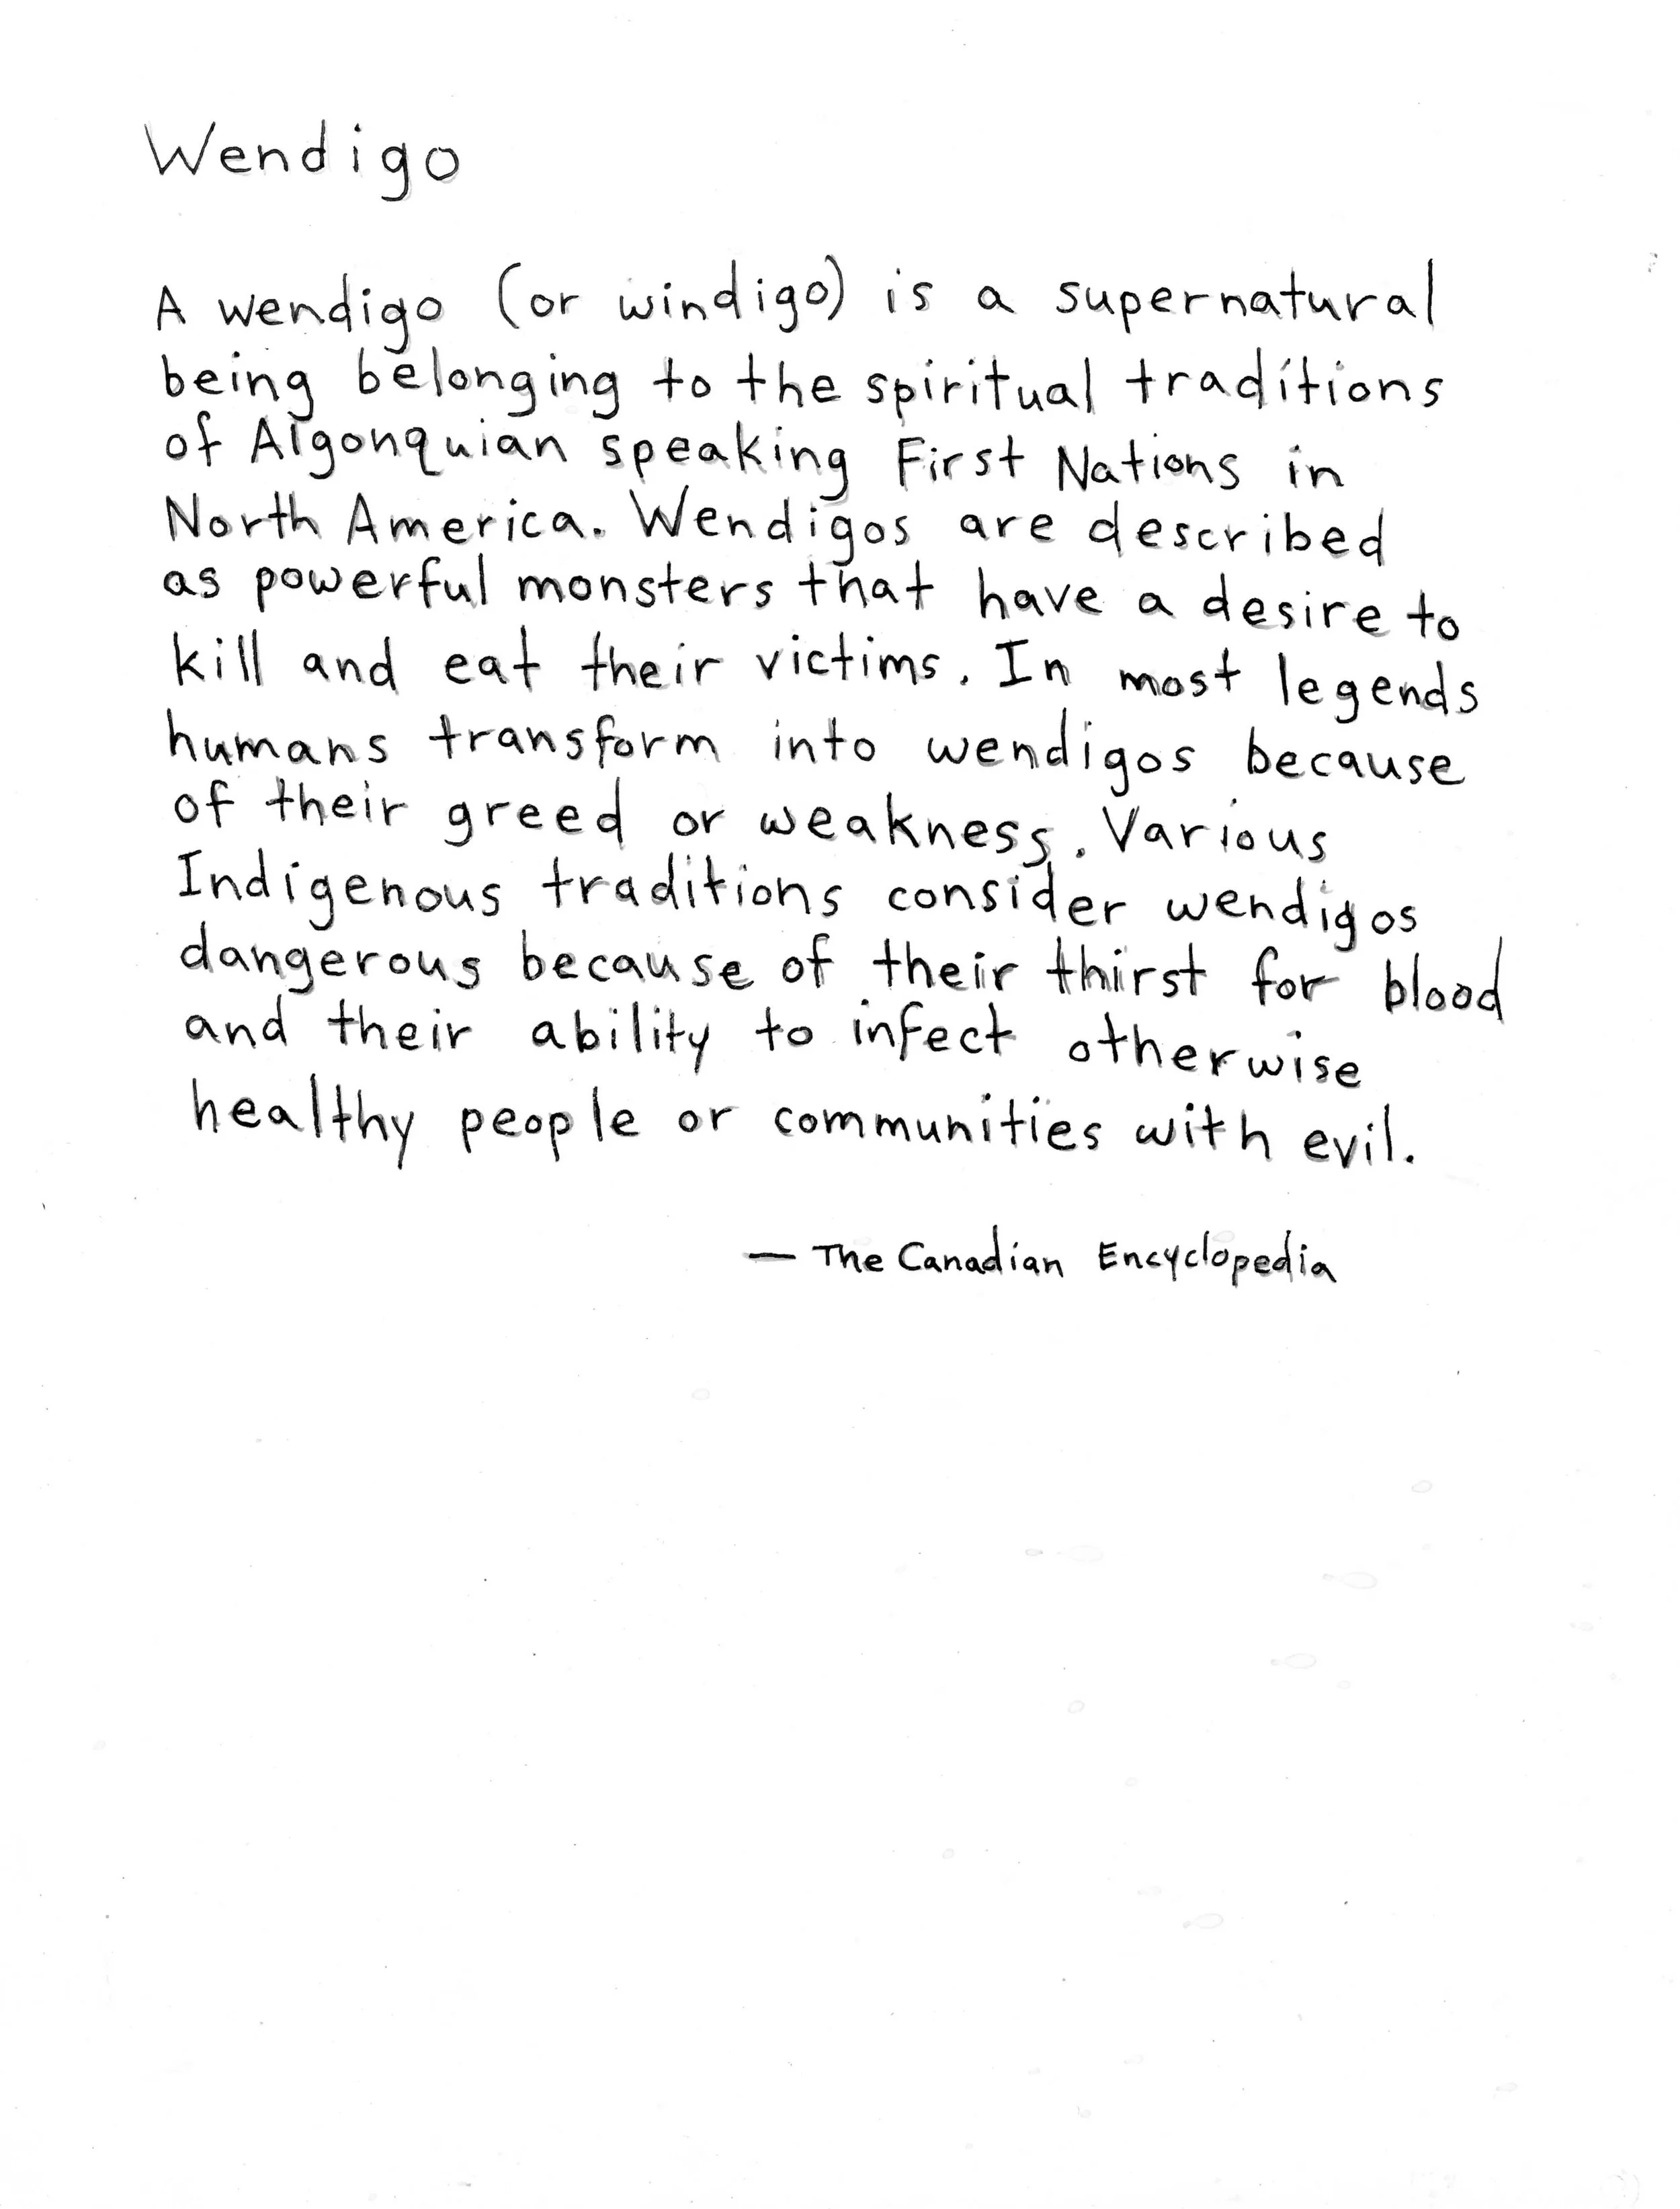 Wendigo
A wendigo (or windigo) is a supernatural
being belonging to the spiritual traditions
of Algonquian speaking First Nations in
North America. Wendigos are described
as powerful monsters that have a desire to
kill and eat their victims. In most legends
humans transform into wendigos because
of their greed or weakness. Various
Indigenous traditions consider wendigos
dangerous because of their thirst for blood
and their ability to infect otherwise
healthy people or communities with evil.
— The Canadian Encyclopedia